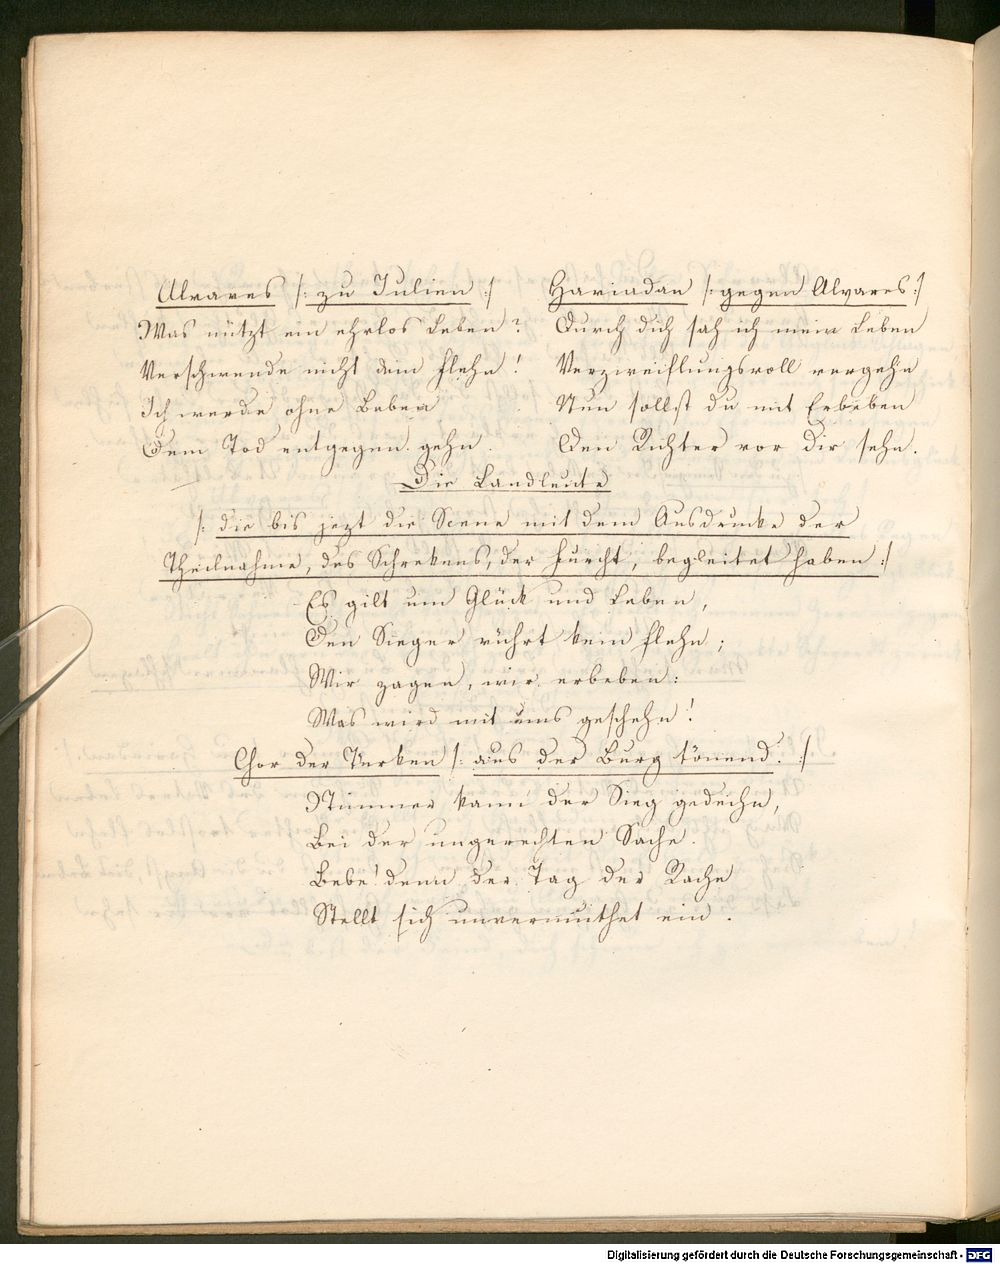 Alvares /: zu Julien :/
Was nützt ein ehrlos Leben?
Verschwende nicht dein Flehn!
Ich werde ohne Beben
Dem Tod entgegen gehn.
Hariadan /: gegen Alvares :/
Durch dich sah ich mein Leben
Verzweiflungsvoll vergehn
Nun sollst du mit Erbeben
Den Richter vor dir sehn.
Die Landleute
/: die bis jezt die Scene mit dem Ausdrucke der
Theilnahme, des Schrekens, der Furcht, begleitet haben :/
Es gilt um Glück und Leben,
Den Sieger rührt kein Flehn;
Wir zagen, wir erbeben:
Was wird mit uns geschehn!
Chor der Türken /: aus der Burg tönend. :/
Nimmer kann der Sieg gedeihn,
Bei der ungerechten Sache.
Bebe! denn der Tag der Rache
Stellt sich unvermuthet ein.
Digitalisierung gefördert durch die Deutsche Forschungsgemeinschaft - DFG